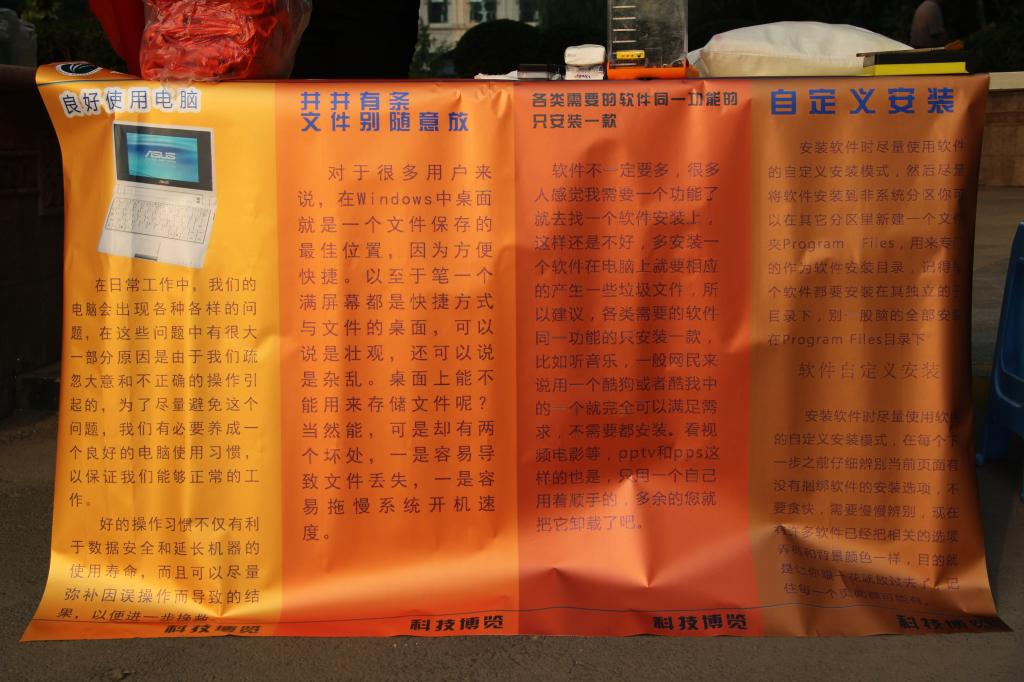 良好使用电脑
ASUS
在日常工作中，我们的
电脑会出现各种各样的问
题，在这些问题中有很大
一部分原因是由于我们疏
忽大意和不正确的操作引
起的，为了尽量避免这个
问题，我们有必要养成一
个良好的电脑使用习惯，
以保证我们能够正常的工
作。
好的操作习惯不仅有利
于数据安全和延长机器的
使用寿命，而且可以尽量
弥补因误操作而导致的结
果，以便进一步挽救
科技博览
井井有条
文件别随意放
对于很多用户来
说，在Windows中桌面
就是一个文件保存的
最佳位置，因为方便
快捷。以至于笔一个
满屏幕都是快捷方式
与文件的桌面，可以
说是壮观，还可以说
是杂乱。桌面上能不
能用来存储文件呢？
当然能，可是却有两
个坏处，一是容易导
致文件丢失，一是容
易拖慢系统开机速
度。
科技博览
各类需要的软件同一功能的
只安装一款
软件不一定要多，很多
人感觉我需要一个功能了
就去找一个软件安装上，
这样还是不好，多安装一
个软件在电脑上就要相应
的产生一些垃圾文件，所
以建议，各类需要的软件
同一功能的只安装一款，
比如听音乐，一般网民来
说用一个酷狗或者酷我中
的一个就完全可以满足需
求，不需要都安装。看视
频电影等，pptv和pps这
样的也是，只用一个自己
用着顺手的，多余的您就
把它卸载了吧。
科技博览
自定义安装
安装软件时尽量使用软件
的自定义安装模式，然后尽量
将软件安装到非系统分区你可
以在其它分区里新建一个文件
夹Program Files，用来专门
的作为软件安装目录，记得每
个软件都要安装在其独立的子
目录下，别一股脑的全部安装
在Program Files目录下
软件自定义安装
安装软件时尽量使用软件
的自定义安装模式，在每个下
一步之前仔细辨别当前页面有
没有捆绑软件的安装选项，不
要贪快，需要慢慢辨别，现在
有许多软件已经把相关的选项
弄得和背景颜色一样，目的就
是让你眼一花就放过去了，记
住每一个页面都可能有。
科技博览